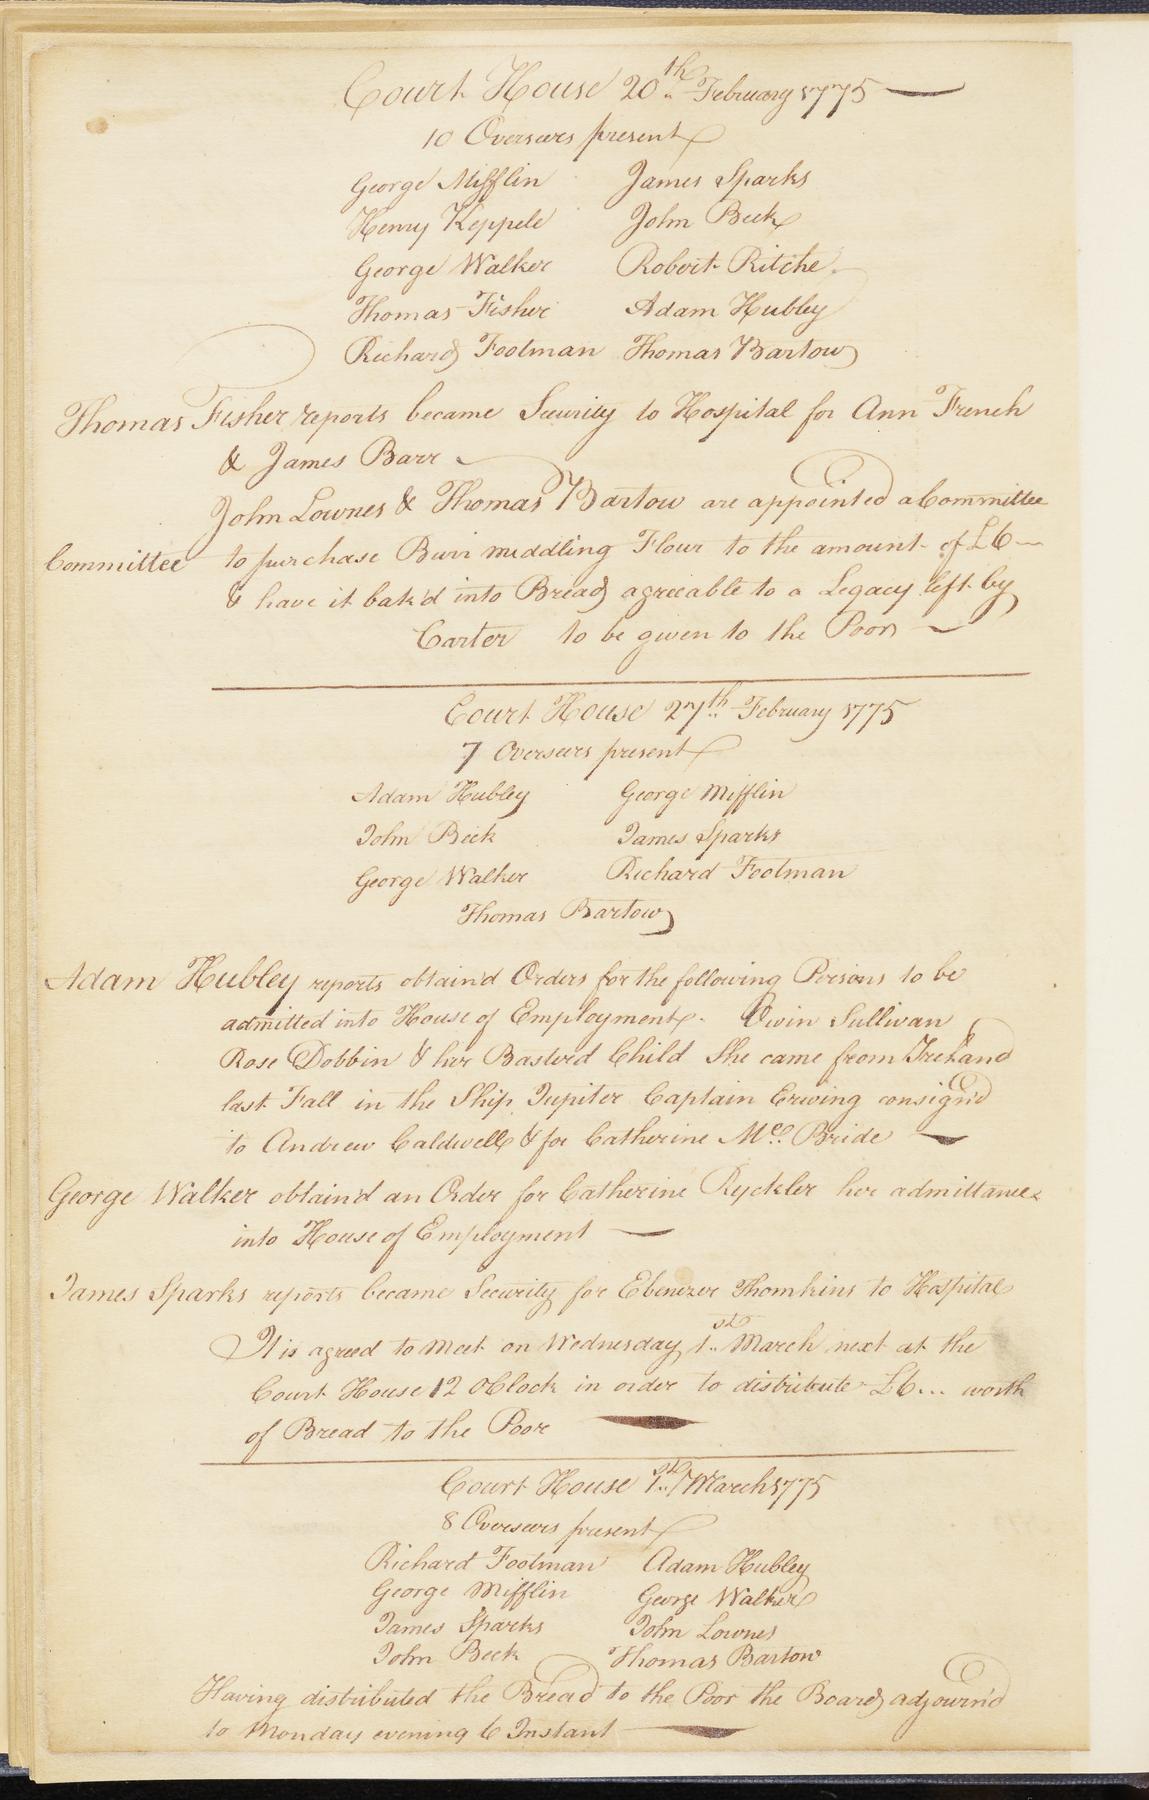 Court House 20th February 1775
10 Overseers present
George Mifflin James Sparks
Henry Keppele John Beck
George Walker Robert Ritche
Thomas Fisher Adam Hubley
Richard Footman Thomas Bartow
Thomas Fisher reports became Security to Hospital for Ann French
& James Barr
John Lownes & Thomas Bartow are appointed a Committee
Committee to purchase Burr middling Flour to the amount of £6
& have it bak'd into Bread agreeable to a Legacy left by
Carter to be given to the Poor
Court House 27th February 1775
7 Overseers present
Adam Hubley George Mifflin
John Beck James Sparks
George Walker Richard Footman
Thomas Bartow
Adam Hubley reports obtain'd Orders for the following Persons to be
admitted into House of Employment. Owin Sullivan
Rose Dobbin & her Basterd Child She came from Ireland
last Fall in the Ship Jupiter Captain Erwing consign'd
to Andrew Caldwell & for Catherine Mc. Bride
George Walker obtain'd an Order for Catherine Ryckler her admittance
into House of Employment
James Sparks reports became Security for Ebenezer Thomkins to Hospital
It is agreed to meet on Wednesday 1st March next at the
Court House 12 OClock in order to distribute £6... worth
of Bread to the Poor
Court House 1st March 1775
8 Overseers present
Richard Footman Adam Hubley
George Mifflin George Walker
James Sparks John Lownes
John Beck Thomas Bartow
Having distributed the Bread to the Poor the Board adjourn'd
to Monday evening 6 Instant